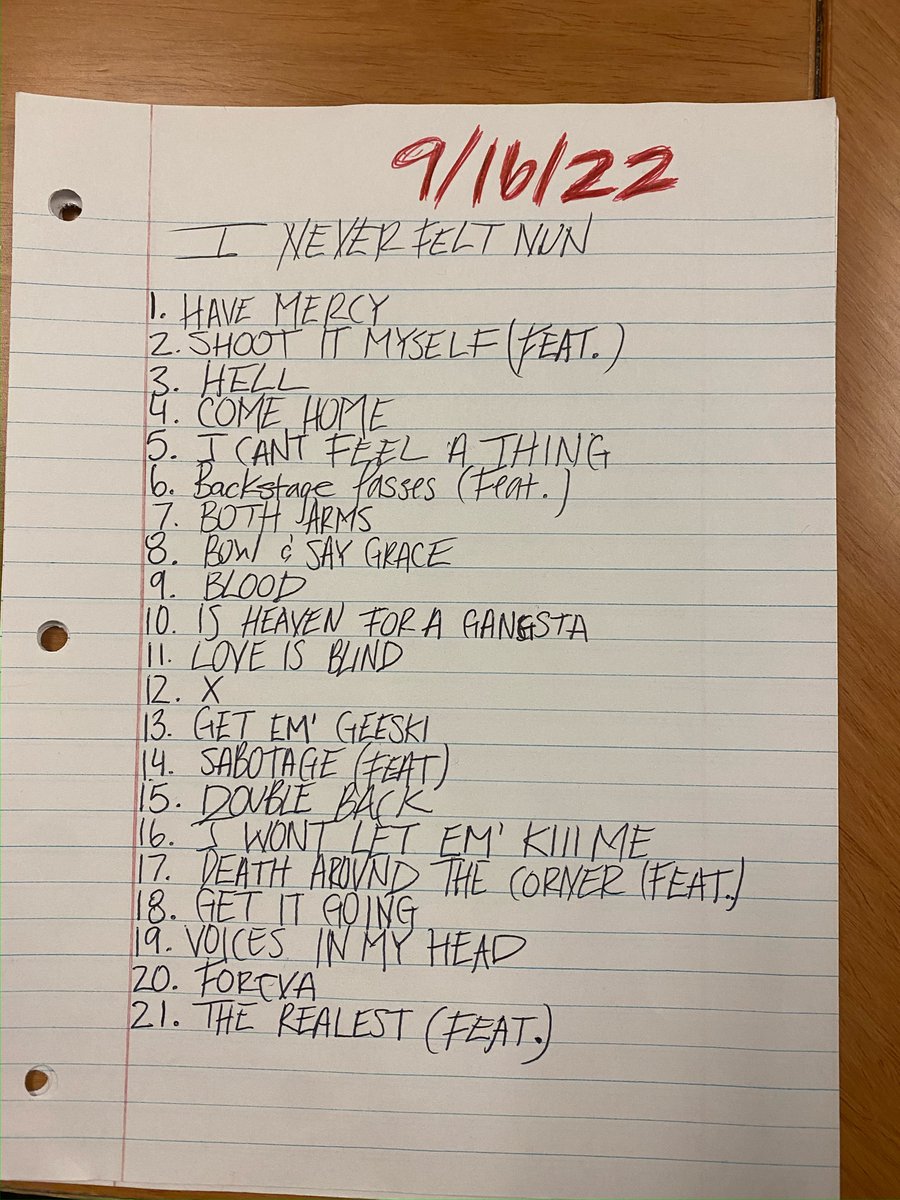 9/16/22
I NEVER FELT NUN
1. HAVE MERCY
2. SHOOT IT MYSELF (FEAT.)
3. HELL
4. COME HOME
5. I CANT FEEL A THING
6. Backstage Passes (Feat.)
7. BOTH ARMS
8. BOW & SAY GRACE
9. BLOOD
10. IS HEAVEN FOR A GANGSTA
11. LOVE IS BLIND
12. X
13. GET EM' GEESKI
14. SABOTAGE (FEAT)
15. DOUBLE BACK
16. I WONT LET EM' KIll ME
17. DEATH AROUND THE CORNER (FEAT.)
18. GET IT GOING
19. VOICES IN MY HEAD
20. FOREVA
21. THE REALEST (FEAT.)